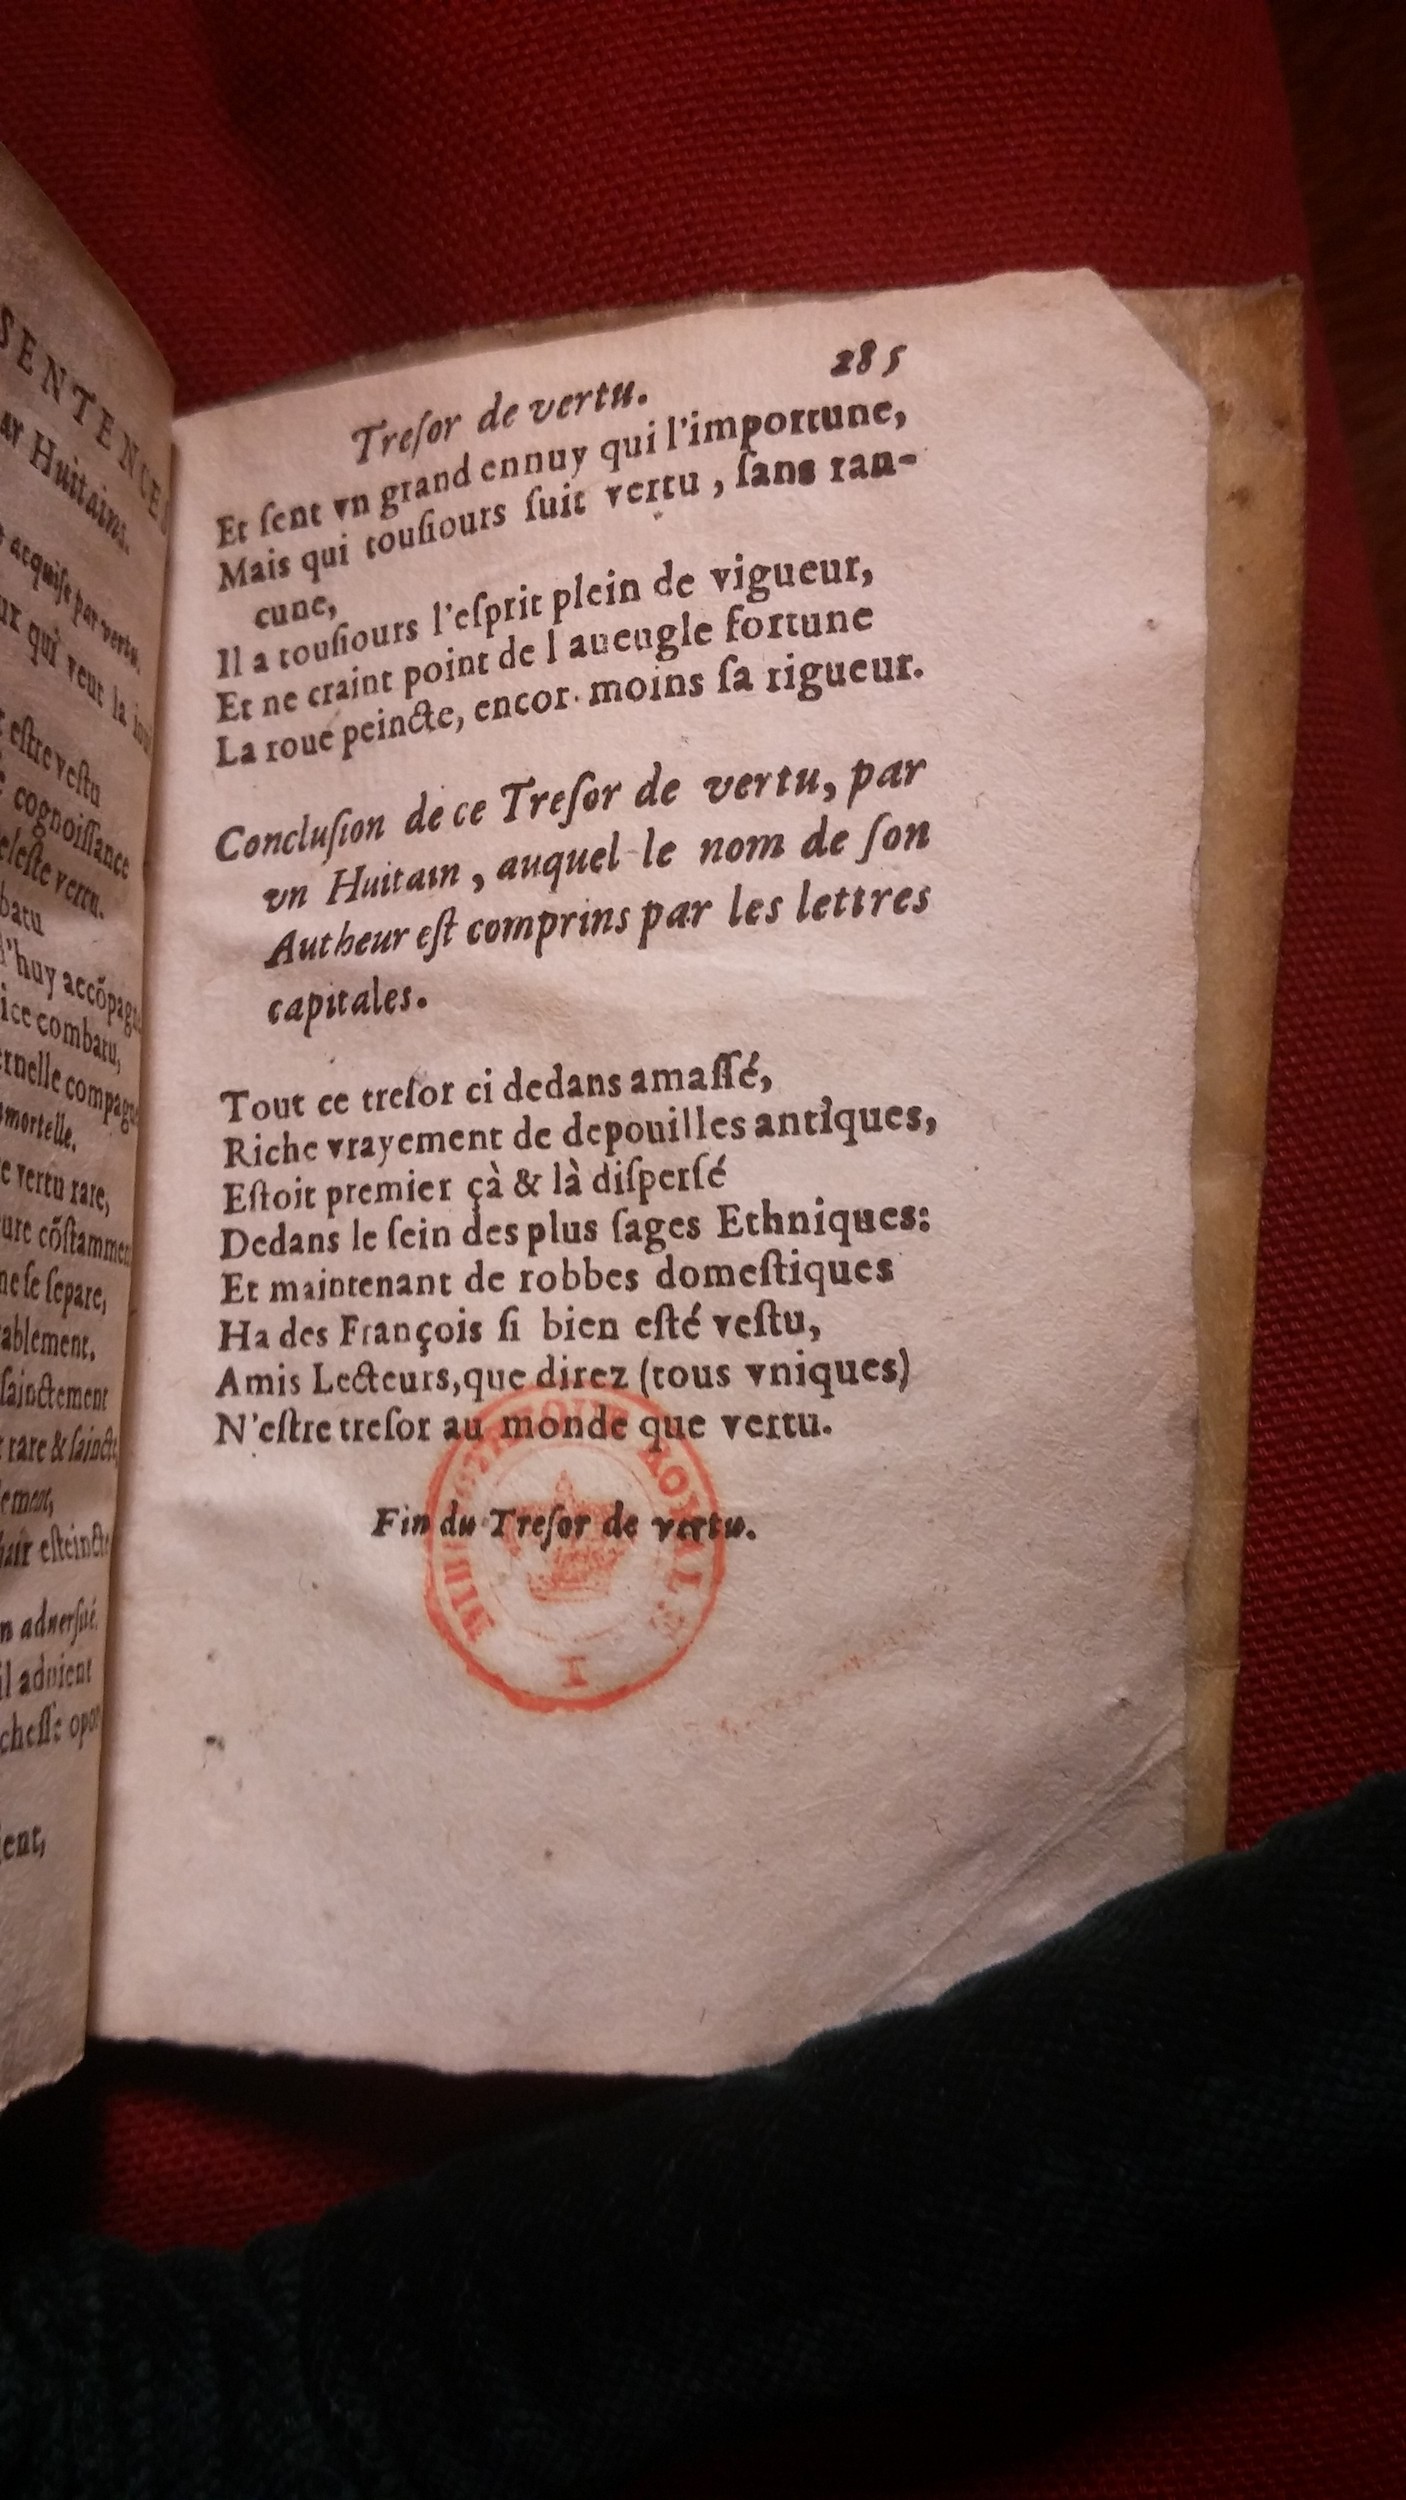 SENTENCES
Huitains.
acquiſe par vertu.
qui veut la
eſtre veſtu
cognoiſſance
vertu.
batu
d'huy accõpag
ice combatu,
ernelle compag
mortelle.
e vertu rare,
ure cõſtammen
ne ſe ſepare,
ablement.
ſainctement
rare & ſaincte
lement,
hair eſteincte
n aduerſité.
il aduient
cheſſe
ent,
285
Treſor de vertu.
Et ſent vn grand ennuy qui l'importune,
Mais qui touſiours ſuit vertu, ſans ran-
cune,
Il a touſiours l'eſprit plein de vigueur,
Et ne craint point de l aueugle fortune
La roue peincte, encor. moins ſa rigueur.
Concluſion de ce Treſor de vertu, par
vn Huitain, auquel le nom de ſon
Autheur eſt comprins par les lettres
capitales.
Tout ce treſor ci dedans amaſſé,
Riche vrayement de depouilles antiques,
Eſtoit premier çà & là diſperſé
Dedans le ſein des plus ſages Ethniques:
Et maintenant de robbes domeſtiques
Ha des François ſi bien eſté veſtu,
Amis Lecteurs, que direz (tous vniques)
N'eſtre treſor au monde que vertu.
Fin du Treſor de vertu.
BIBLIOTHEQUE ROYALE
I